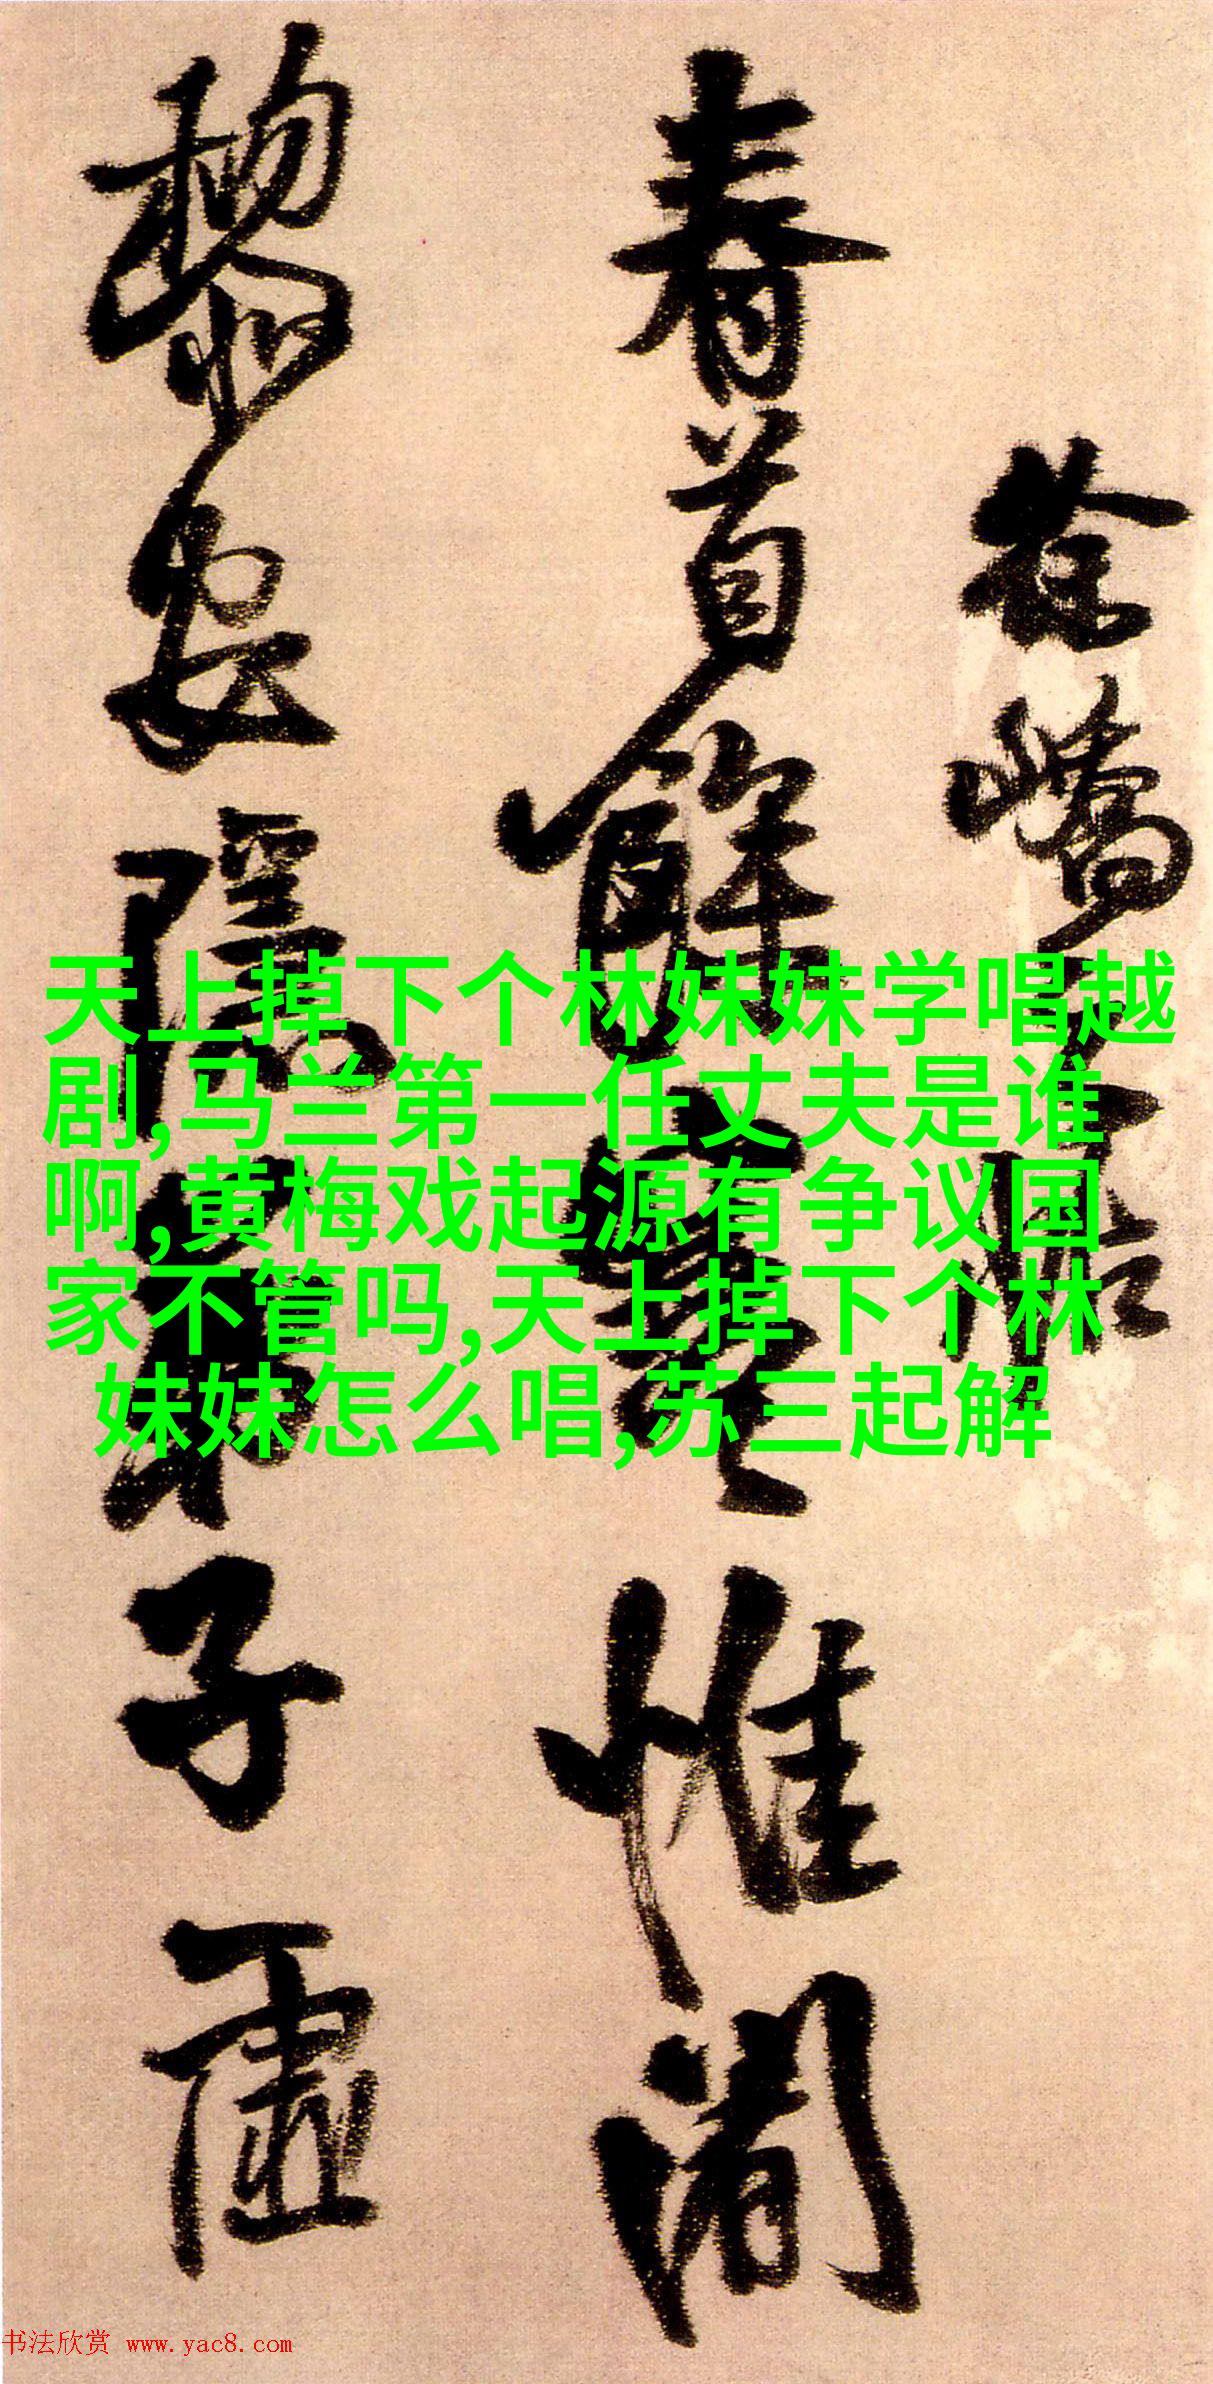 徐嶠之帖
春首餘寒惟闍
黎安隱弟子虛
天上掉下个林妹妹学唱越
剧,马兰第一任丈夫是谁
啊,黄梅戏起源有争议国
家不管吗,天上掉下个林
妹妹怎么唱,苏三起解
书法欣赏 www.yac8.com